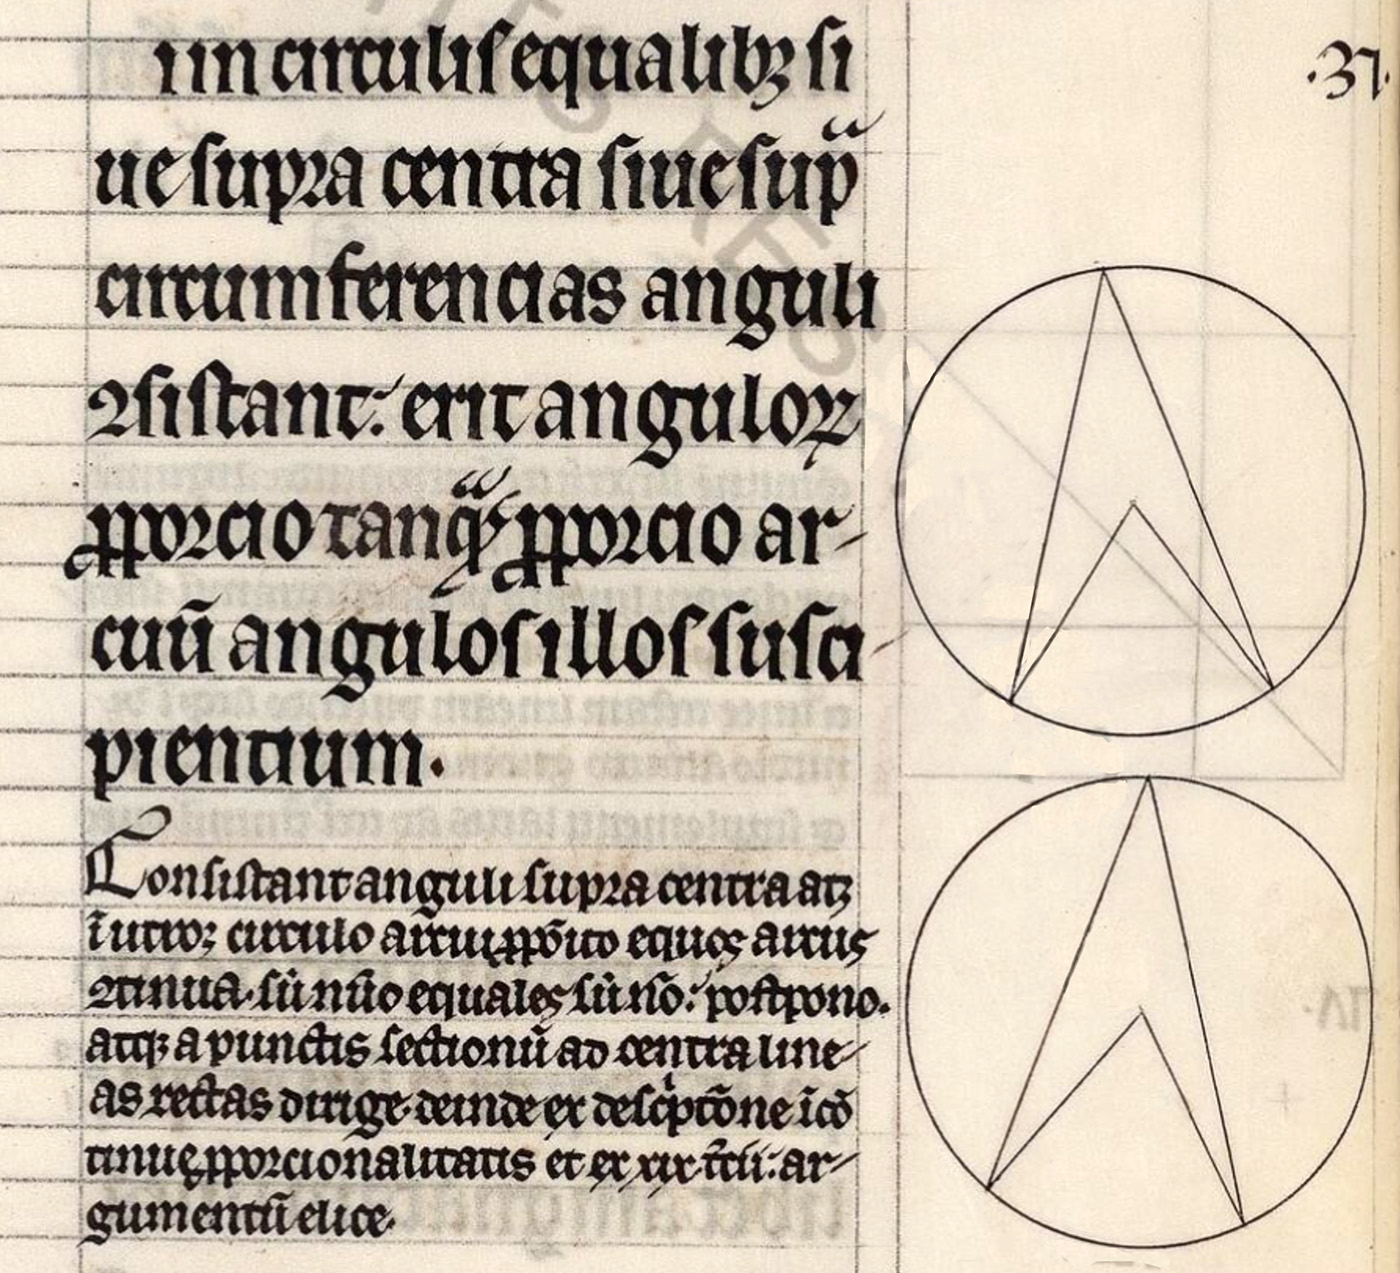 ·37·
iin circulis equalibꝫ si
ue supra centra siue sup̃
circumferencias anguli
ꝯsistant: erit anguloꝝ
ꝓporcio tanq̃ ꝓporcio ar-
cuū angulos illos susci
pientium.
Consistant anguli supra centra atꝫ
ī utroꝫ circulo arcui ꝓpōito equos arcus
ꝯtinua. siͥ nūo equales siͥ nō: postpono.
atqꝫ a punctis sectionū ad centra line-
as rectas dirige. deinde ex descͥptōne īcō
tinue ꝓporcionalitatis et ex xix t̄cii: ar-
gumentū elice.